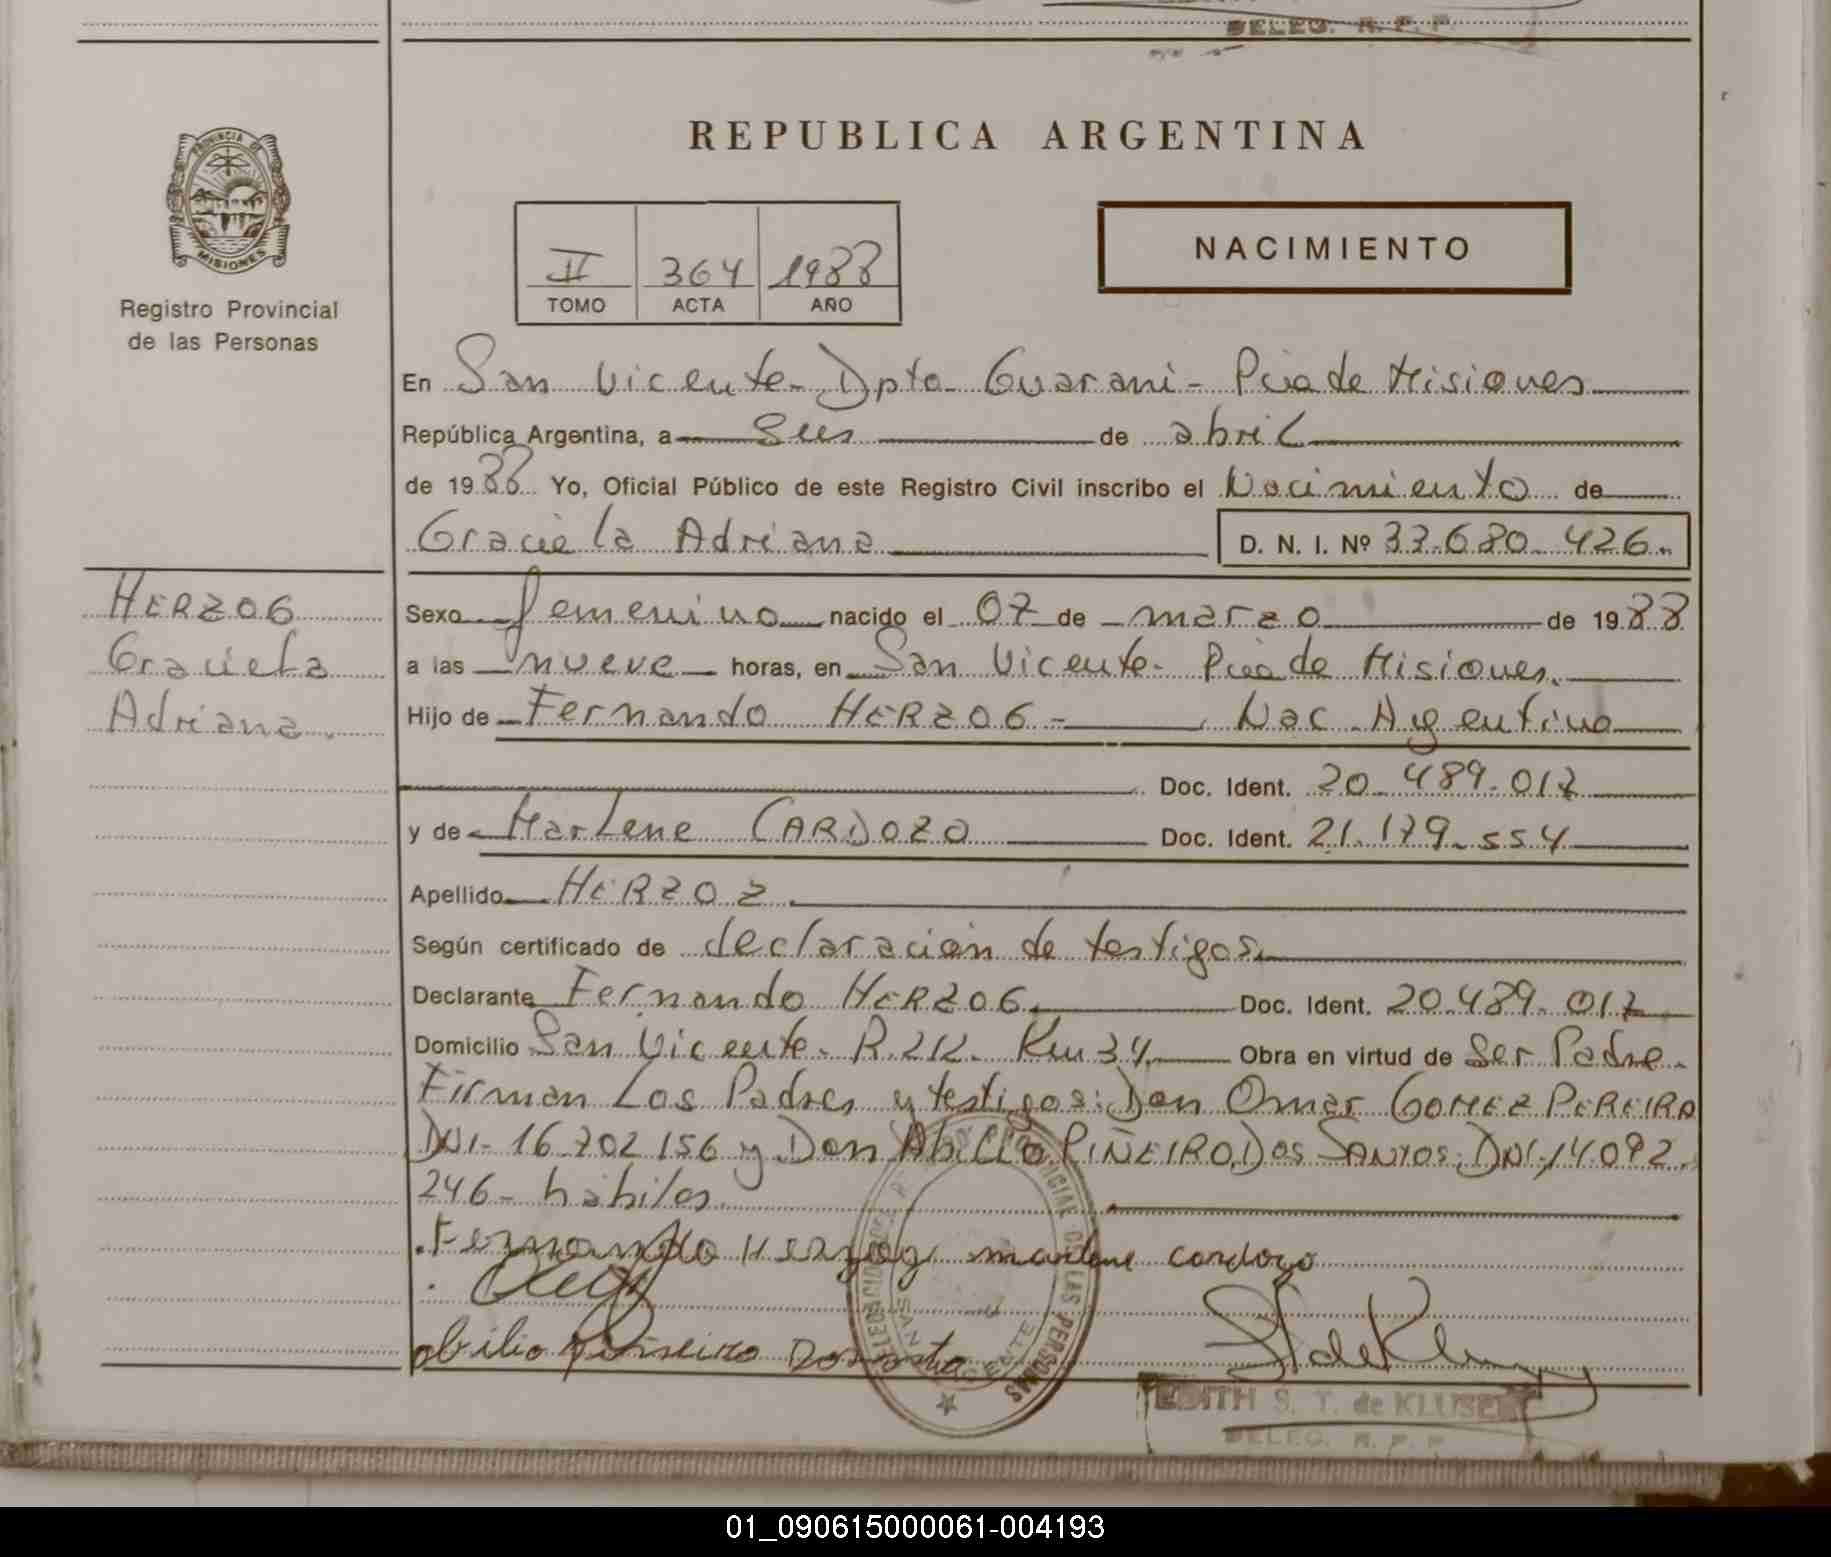 DELEG. R. P. P.
REPUBLICA ARGENTINA
PROVINCIA DE
MISIONES
Registro Provincial
de las Personas
II 364 1988
TOMO ACTA AÑO
NACIMIENTO
En San Vicente - Dpto - Guarani - Pcia de Misiones
República Argentina, a seis de abril
de 1988 Yo, Oficial Público de este Registro Civil inscribo el Nacimiento de
Graciela Adriana D. N. I. Nº 33.680.426.
HERZOG
Graciela
Adriana.
Sexo femenino nacido el 07 de marzo de 1988
a las nueve horas, en San Vicente - Pcia de Misiones.
Hijo de Fernando HERZOG - Nac. Argentino
Doc. Ident. 20.489.017
y de Marlene CARDOZO Doc. Ident. 21.179.554
Apellido HERZOZ.
Según certificado de declaración de testigos.
Declarante Fernando HERZOG. Doc. Ident. 20.489.017
Domicilio San Vicente. R. 212. Km 34. Obra en virtud de Ser Padre.
Firman Los Padres y testigos: Don Omar GOMEZ PEREIRA
DNI- 16.702.156 y Don Abilio PIÑEIRO DOS SANTOS, DNI-14.092.
246 - hábiles.
Fernando Herzog marlene cardozo
abilio piñeiro
EDITH S. T. de KLUSE
DELEG. R. P. P.
01_090615000061-004193